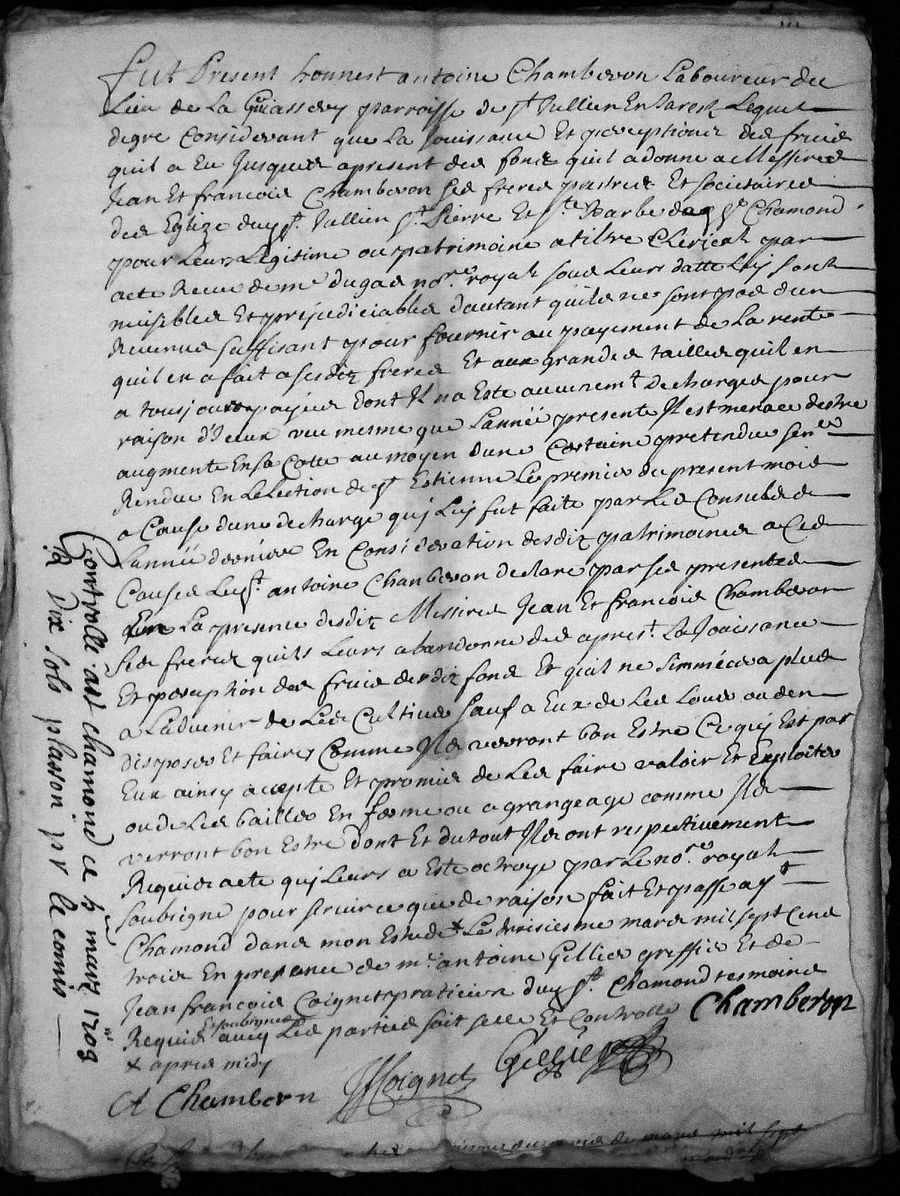 Fut Present honnest antoine Chamberon Laboureur du
Lieu de La parroisse de st Jullien En Jarest Lequel
degre Considerant que La Jouissance Et perceptions des fruis
quil a Eu Jusques apresent des fons quil a donne a Messires
Jean Et francois Chamberon ses freres prestres Et societaires
des Eglize dud st Jullien st Pierre Et ste Barbe st Chamond
pour Leurs Legitime ou patrimoine a tiltre Clerical par
acte Receu de me dugas nore royal sous Leurs datte Luy sont
nuisibles Et prejudiciables dautant quils ne sont pas dun
Revenus suffisant pour fournir au payement de La rente
quil en a fait a sesditz freres Et aux grandes tailles quil en
a tousjours payées dont Il na Este aucuremt decharges pour
raison diceux veu mesme que Lannée presente Il est menace destre
augmente En sa Cotte au moyen dune Certaine pretendue senee
Rendue En Lelection de st Estienne Le premier du present mois
a Cause dune decharge quj Luy fut faite par Les Consuls de
Lannée derniere En Consideration desditz patrimoines a Ces
Causes Led st antoine Chamberon declare par ses presentes
En La presence desditz Messires Jean Et francois Chamberon
ses freres quils Leurs abandonne des apresent La Jouissance
Et perception des fruis desditz fons Et quil ne simmécera plus
a Ladvenir de Les Cultiver sauf a Eux de Les Louer ou den
disposer Et faires Comme Ils verront bon Estre Ce quj Est par
Eux ainsy accepte Et promis de Les faire valoir Et Exploiter
ou de Les bailler En ferme ou a grangeage comme Ils
verront bon Estre dont Et du tout Ils ont respectivement
Requis acte quj Leurs a Este octroye par Le nore royal
soubsigne pour servir ce que de raison fait Et passe a st
Chamond dans mon Estude + Le troisiesme mars mil sept Cens
trois En presance de me antoine Gillier greffier Et de
Jean francois Coignet praticien dud st Chamond tesmoins
Requis Et soubsignes avec Les parties soit selle Et Controlle Chamberon
+ apres midy
A Chamberon JfCoignet Gillier
Controllé a st chamond ce 5 mars 1703
Rs Dix sols par le comis
mars mil sept